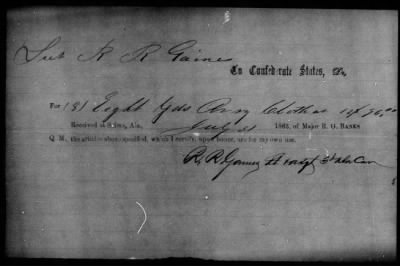 Lieut R R Gaines
To Confederate States, &c.,
For (8) Eight Yds Army Clothes
Received at Selma, Ala., July 1865, of Major R. G. BANKS
Q. M., the articles above specified, which I certify, upon honor, are for my own use.
R. R. Gaines Lt & Adjt 3d Ala Cav